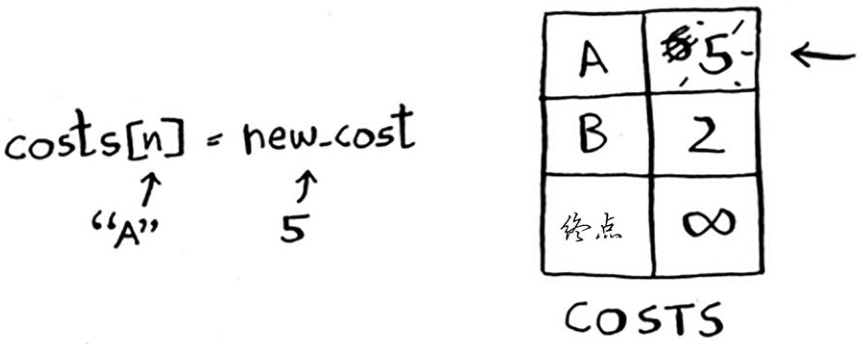 costs[n] = new_cost
↑ ↑
"A" 5
A 5 ←
B 2
终点 ∞
COSTS